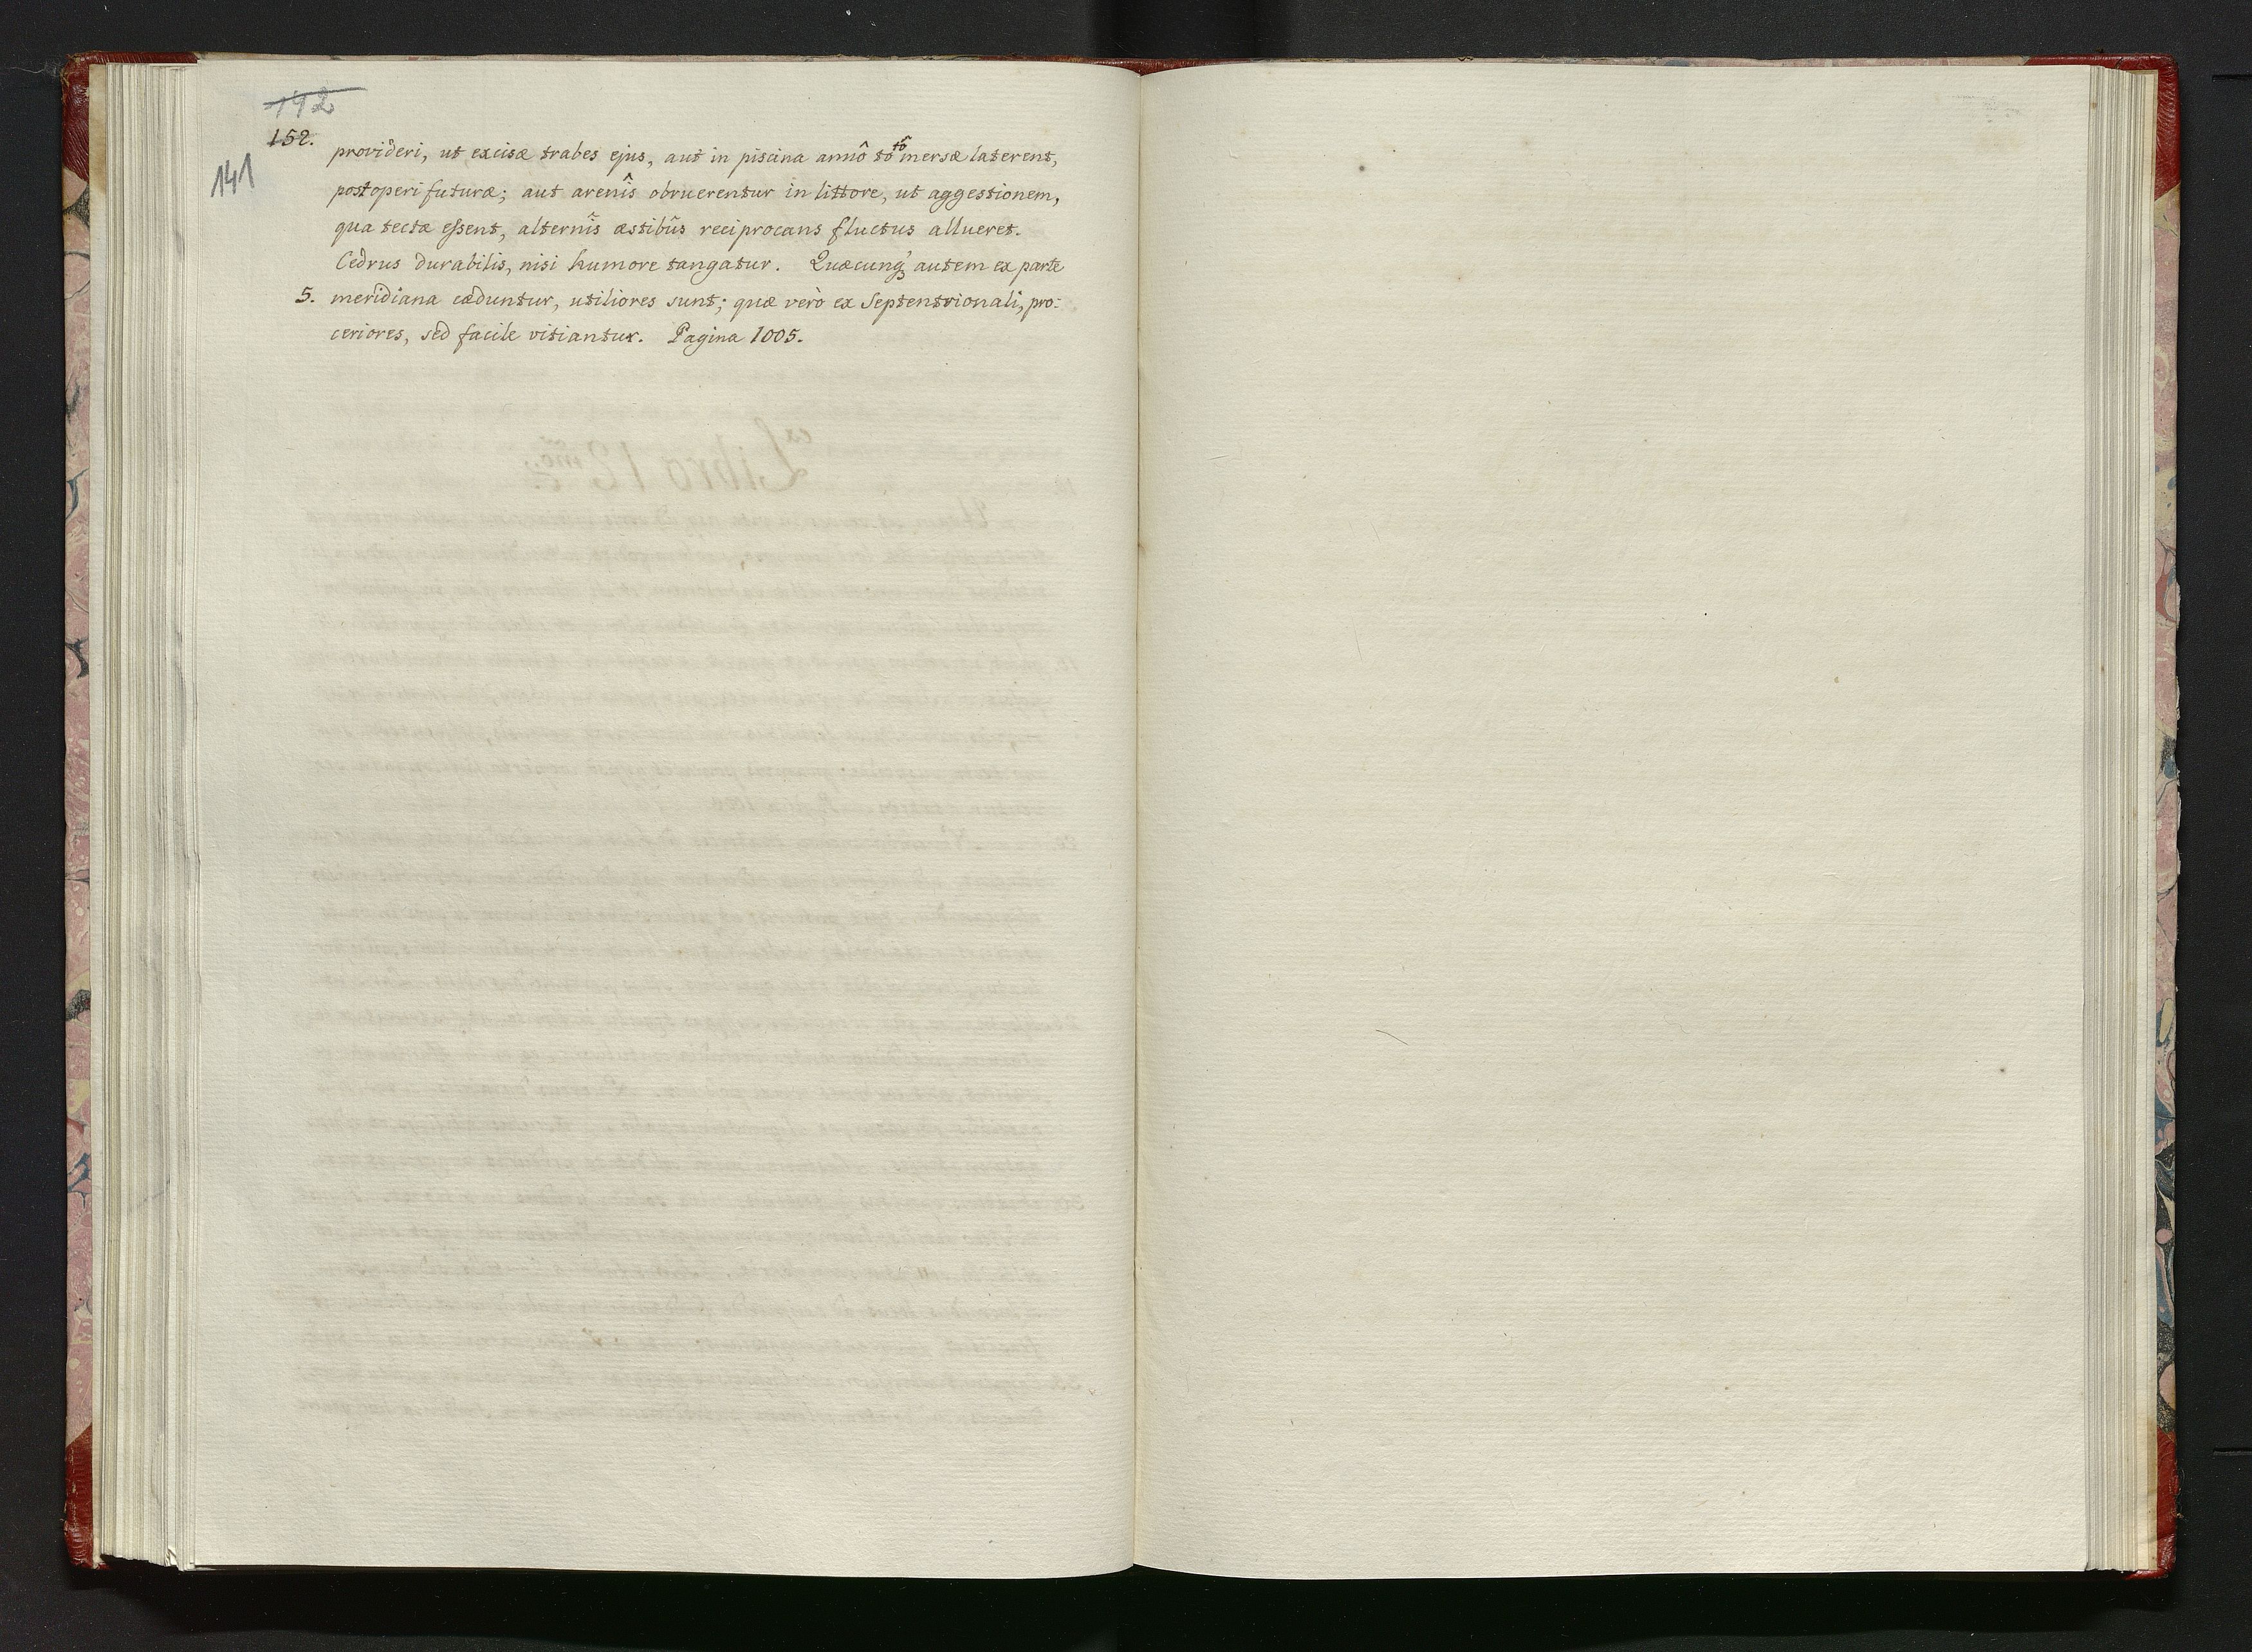 142
152.
141
provideri, ut excisæ trabes ejus, aut in piscina annô totô mersæ laterent,
post operi futuræ; aut arenîs obruerentur in littore, ut aggestionem,
qua tectæ essent, alternîs æstibûs reciprocans fluctus allueret.
Cedrus durabilis, nisi humore tangatur. Quæcunq3 autem ex parte
5. meridiana cæduntur, utiliores sunt; quæ verò ex Septentrionali, pro:
ceriores, sed facile vitiantur. Pagina 1005.